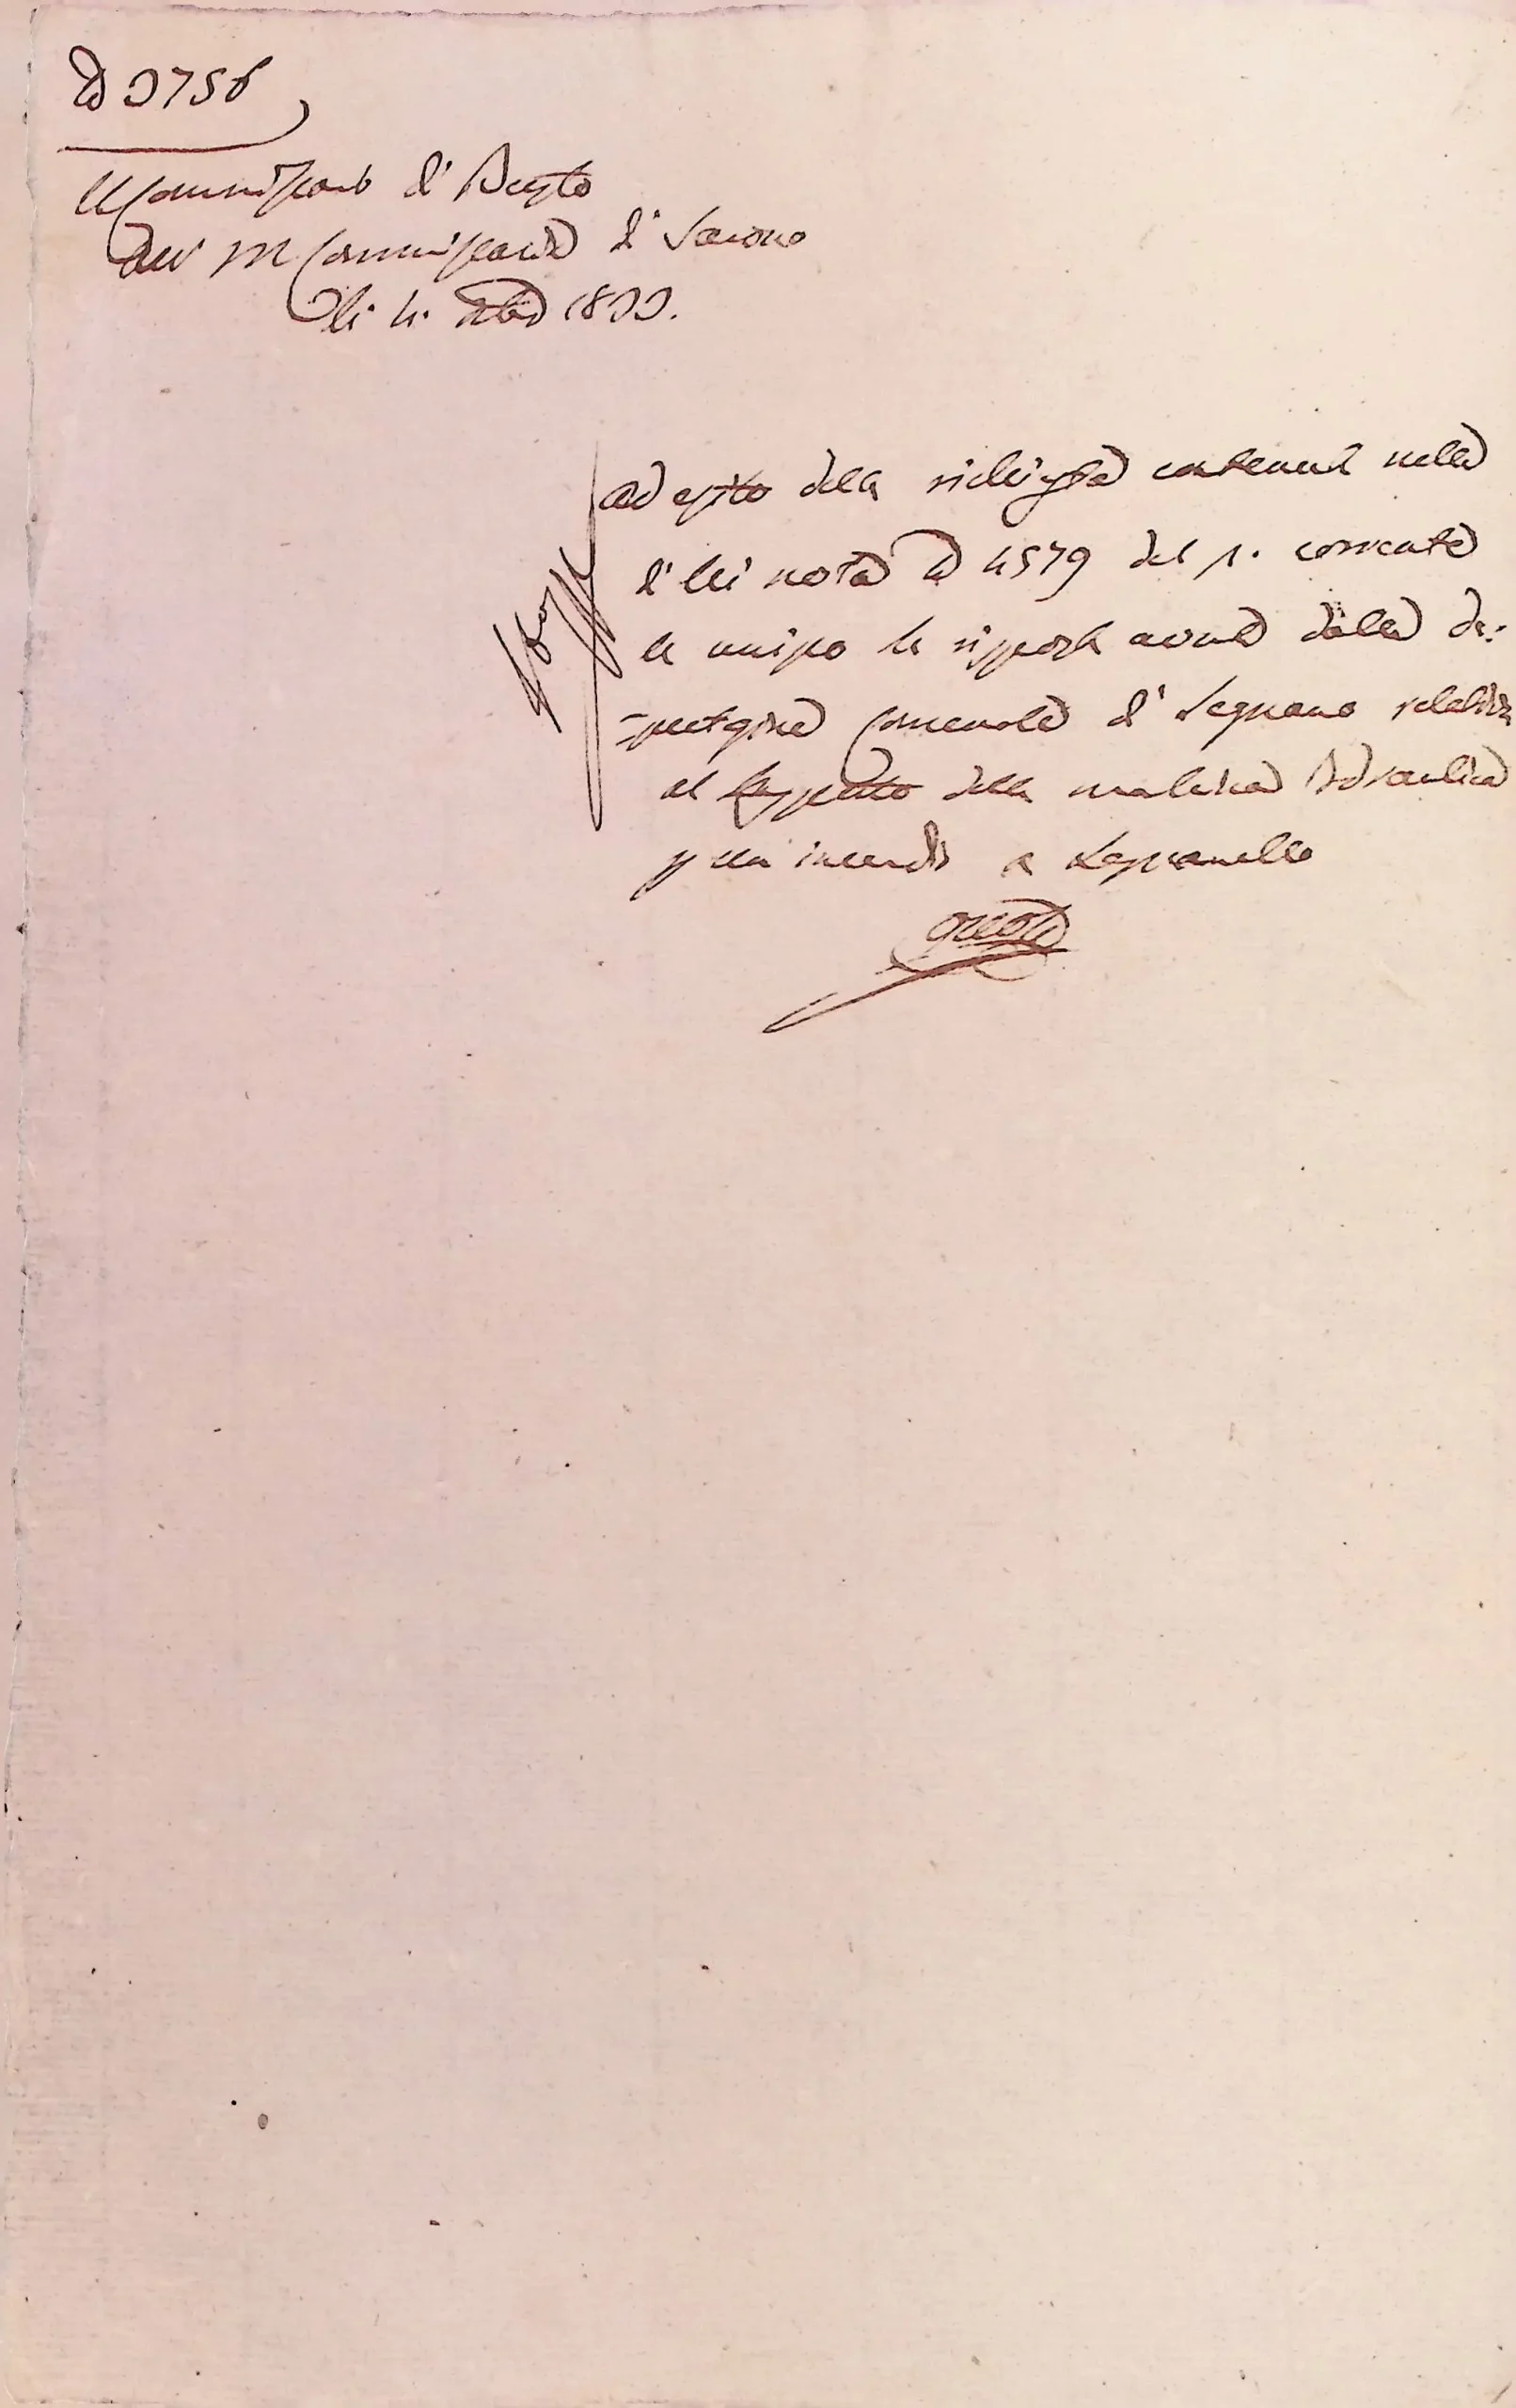 N 3756
Il Commissario di Busto
All' I. R. Commissario di Sarono
li 4. 1833.
Ad esito della richiesta contenuta nella
di lei nota N 4579 del 1. corrente
le unisco la risposta avuta dalla De:
=putazione Comunale di Legnano relativa
al della machina Idraulica
per incendi a Legnanello